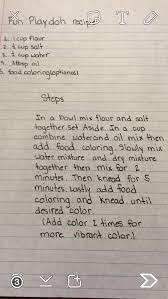 Fun Playdoh recipe
1. 1 cup flour
2. ½ cup salt
3. ½ cup water
4. 1tbsp oil
5. food coloring(optional)
Steps
In a bowl mix flour and salt
together. Set Aside. In a cup
combine water and oil mix then
add food coloring. Slowly mix
water mixture and dry mixture
together then mix for 2
minutes. Then knead for 5
minutes. Lastly add food
coloring and knead until
desired color.
(Add color 2 times for
more vibrant color.)
3